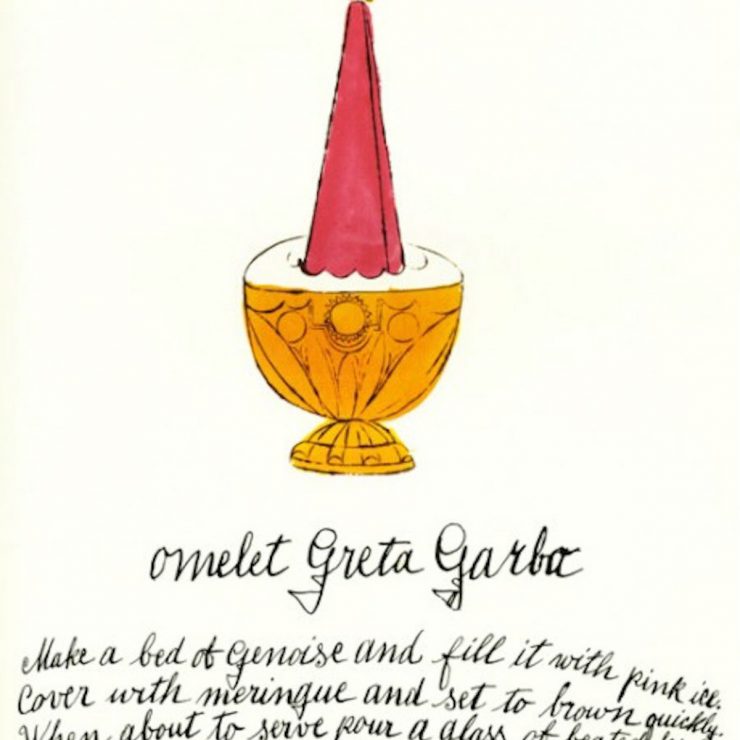 omelet Greta Garbo
Make a bed of Genoise and fill it with pink ice.
Cover with meringue and set to brown quickly.
When about to serve pour a glass of heated